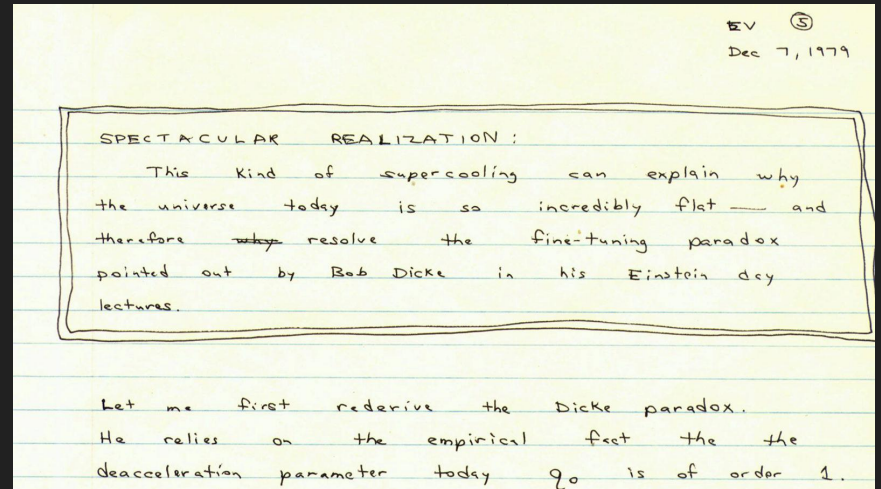 EV ⑤
Dec 7, 1979
SPECTACULAR REALIZATION:
This kind of supercooling can explain why
the universe today is so incredibly flat — and
therefore why resolve the fine-tuning paradox
pointed out by Bob Dicke in his Einstein day
lectures.
Let me first rederive the Dicke paradox.
He relies on the empirical fact the the
deacceleration parameter today q₀ is of order 1.